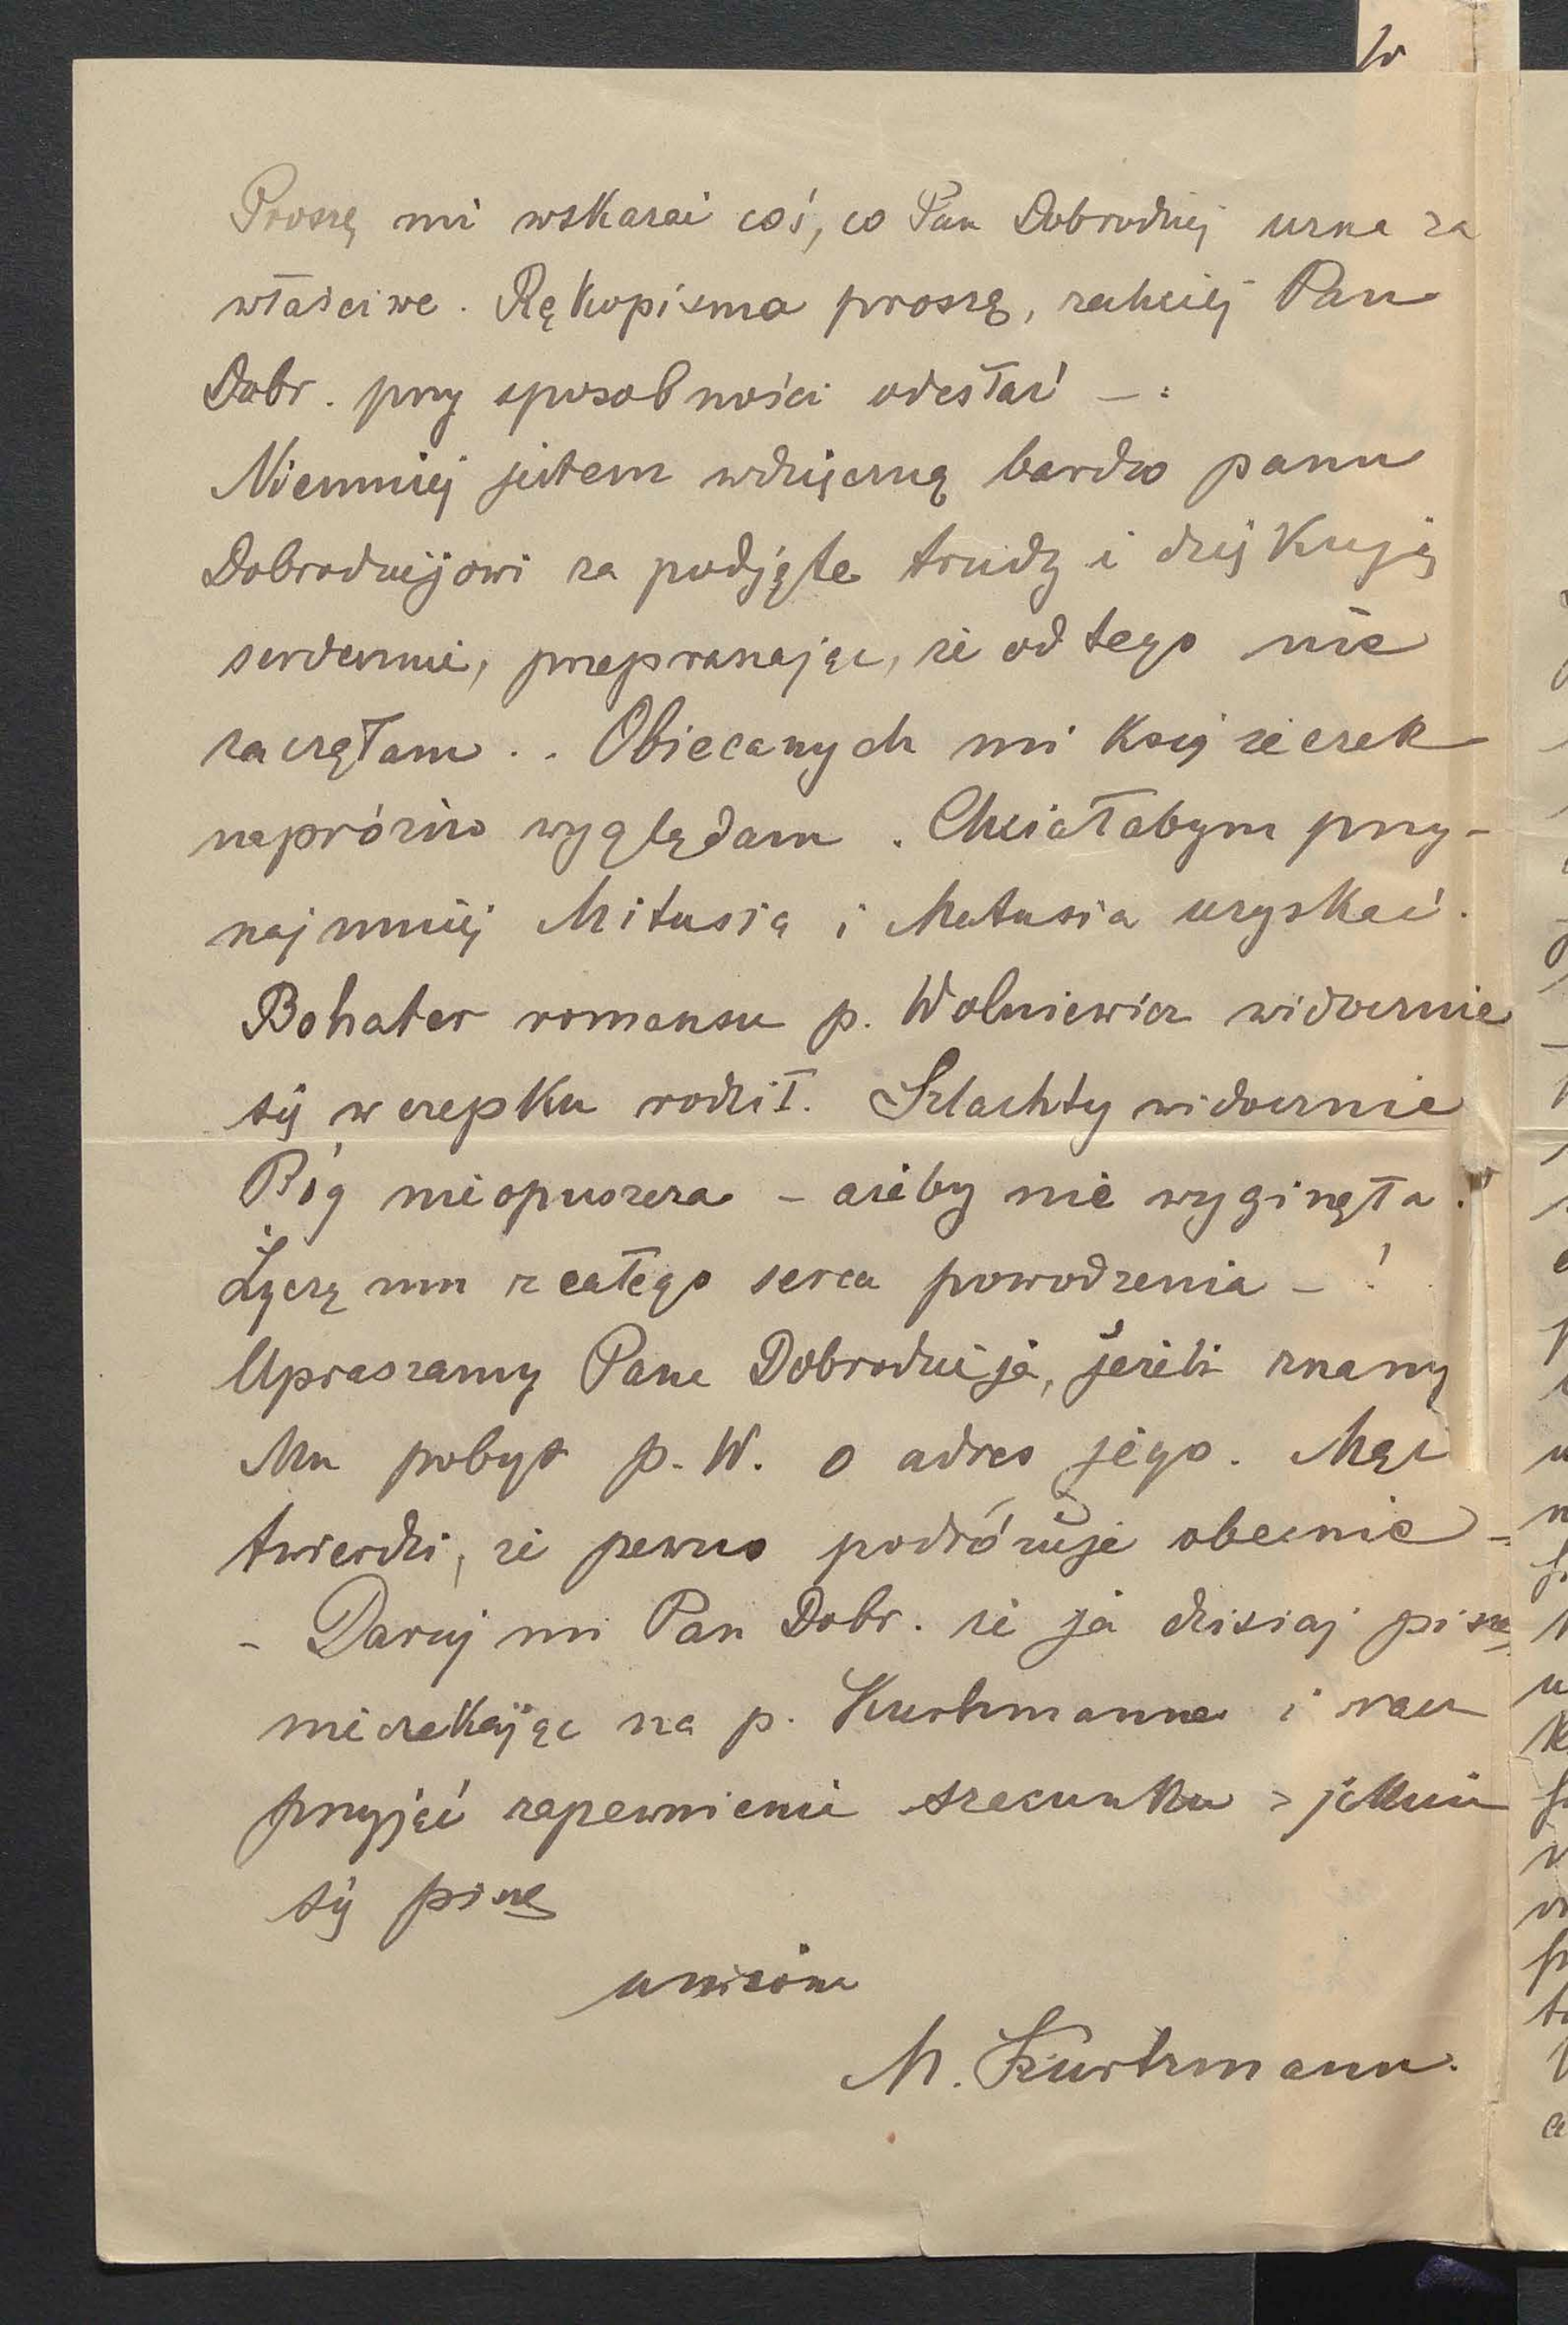 Proszę mi wskazać coś, co Pan Dobrodziej uzna za
właściwe. Rękopisma proszę, zechciej Pan
Dobr. przy sposobności odesłać -.
Niemniej jestem wdzięczną bardzo panu
Dobrodziejowi za podjęte trudy i dziękuję
serdecznie, przepraszając, że od tego nie
zaczęłam.. Obiecanych mi książeczek
napróżno wyglądam. Chciałabym przy-
najmniej Mitusia i Matusia uzyskać.
Bohater romansu p. Wolniewicz widocznie
się w czepku rodził. Szlachty widocznie
Bóg nie opuszcza - ażeby nie wyginęła.
Życzę mu z całego serca powodzenia - !
Upraszamy Pana Dobrodzieja, jeżeli znany
Mu pobyt p. W. o adres jego. Mąż
twierdzi, że pewno podróżuje obecnie -
- Daruj mi Pan Dobr. że ja dzisiaj piszę
nie czekając na p. Kurtzmanna i racz
przyjąć zapewnienie szacunku z jakim
się piszę
uniżona
M. Kurtzmann.